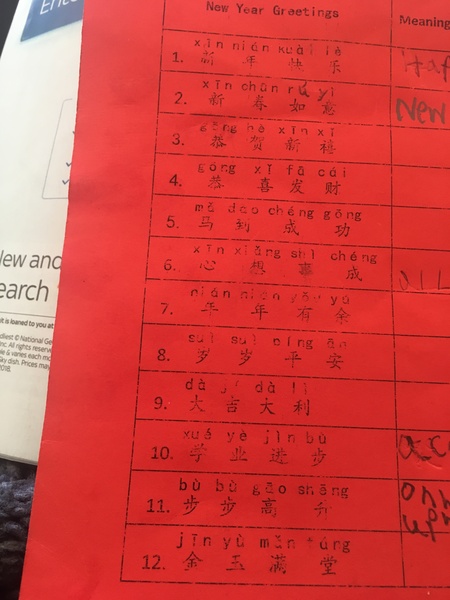 New Year Greetings
Meaning
xīn nián kuài lè
1. 新 年 快 乐
xīn chūn rú yì
2. 新 春 如 意
New
gōng hè xīn xǐ
3. 恭 贺 新 禧
gōng xǐ fā cái
4. 恭 喜 发 财
mǎ dào chéng gōng
5. 马 到 成 功
xīn xiǎng shì chéng
6. 心 想 事 成
nián nián yǒu yú
7. 年 年 有 余
suì suì píng ān
8. 岁 岁 平 安
dà jí dà lì
9. 大 吉 大 利
xué yè jìn bù
10. 学 业 进 步
bù bù gāo shēng
11. 步 步 高 升
jīn yù mǎn táng
12. 金 玉 满 堂
earch
it is loaned to you at
© National Ge
All rights reserve
& varies each mo
Sky dish. Prices may
2018.